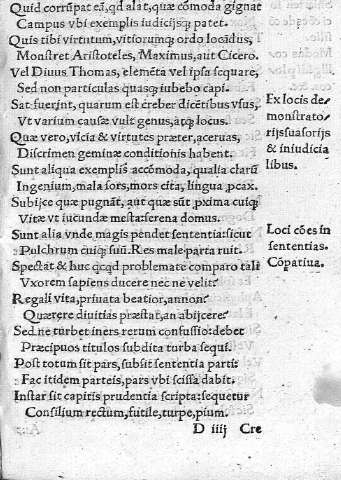 Quid corrũpat eã, qd alat, quæ cõmoda gignat
Campus vbi exemplis iudicijsq; patet.
Quis tibi virtutum, vitiorumq; ordo locãdus,
Monstret Aristoteles, Maximus, aut Cicero.
Vel Diuus Thomas, elemẽta vel ipsa sequare,
Sed non particulas quasq; iubebo capi.
Sat fuerint, quarum est creber dicẽtibus vsus,
Vt varium causæ vult genus, atq; locus.
Quæ vero, vicia & virtutes præter, aceruas,
Discrimen geminæ conditionis habent.
Sunt aliqua exemplis accõmoda, qualia clarũ
Ingenium, mala fors, mors cita, lingua pcax.
Subijce quæ pugnãt, aut quæ sũt pxima cuiq;
Vitæ vt iucundæ mesta: serena domus.
Sunt alia vnde magis pendet sententia: sicut
Pulchrum cuiq; suũ. Res male parta ruit.
Spectãt & huc qcqd problemate comparo tali
Vxorem sapiens ducere nec ne velit?
Regali vita, priuata beatior, annon?
Quærere diuitias præstat, an abijcere?
Sed ne turbet iners rerum confussio: debet
Præcipuos titulos subdita turba sequi.
Post totum sit pars, subsit sententia parti:
Fac itidem parteis, pars vbi scissa dabit.
Instar sit capitis prudentia scripta: sequetur
Consilium rectum, futile, turpe, pium.
D iiij Cre
Ex locis de⸗
monstrato⸗
rijs suasorijs
& iniudicia
libus.
Loci cões in
sententias.
Cõpatiua.